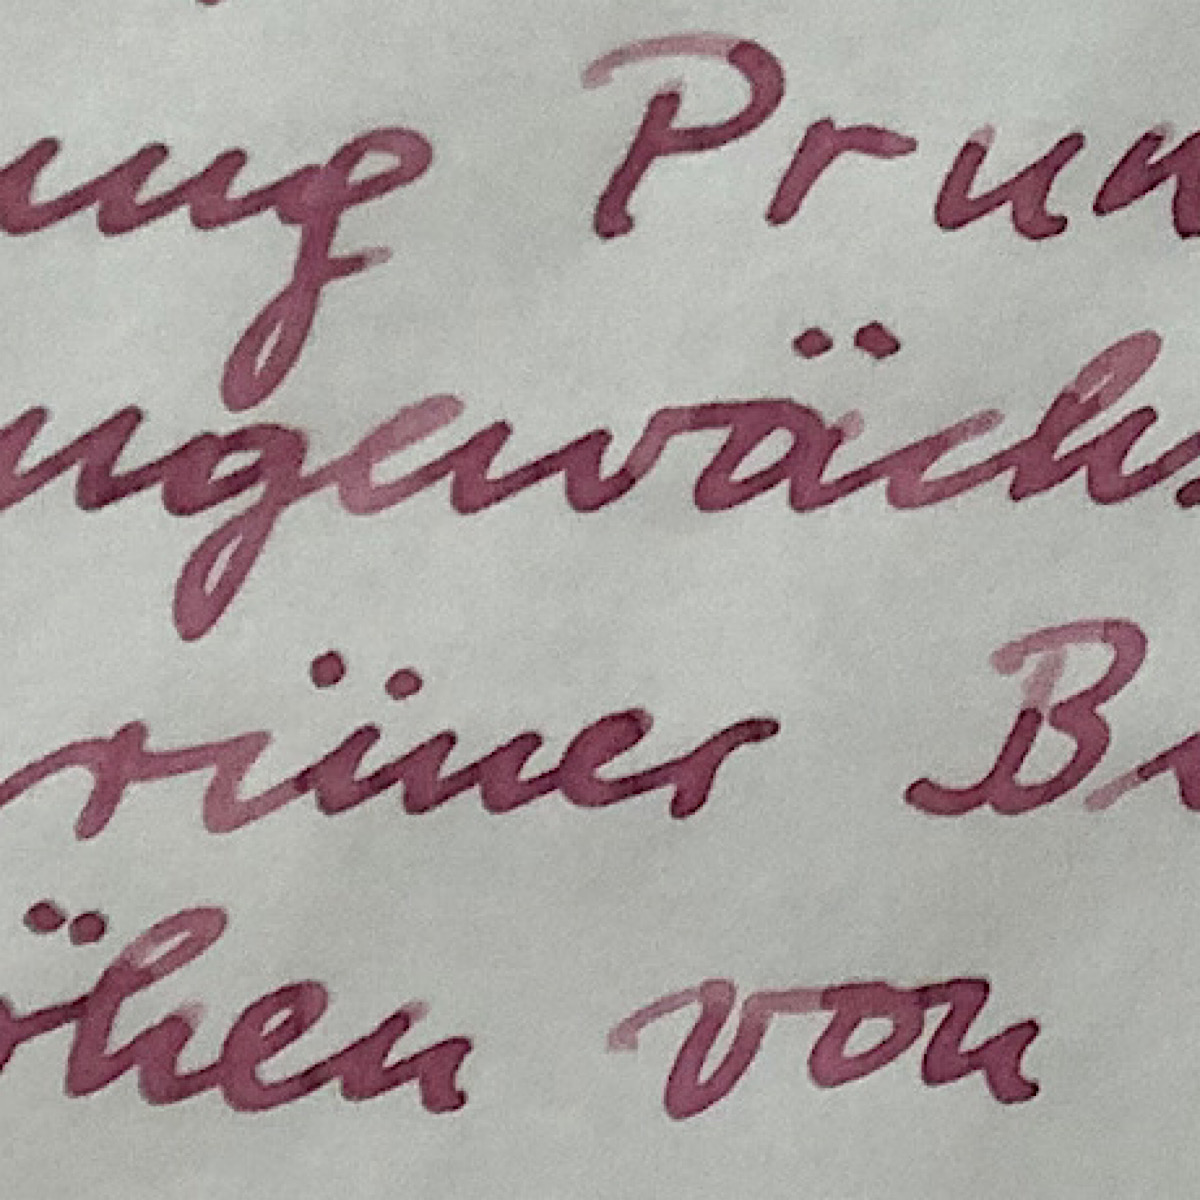 ung Prun
ngewächs
rüner B
öhen von